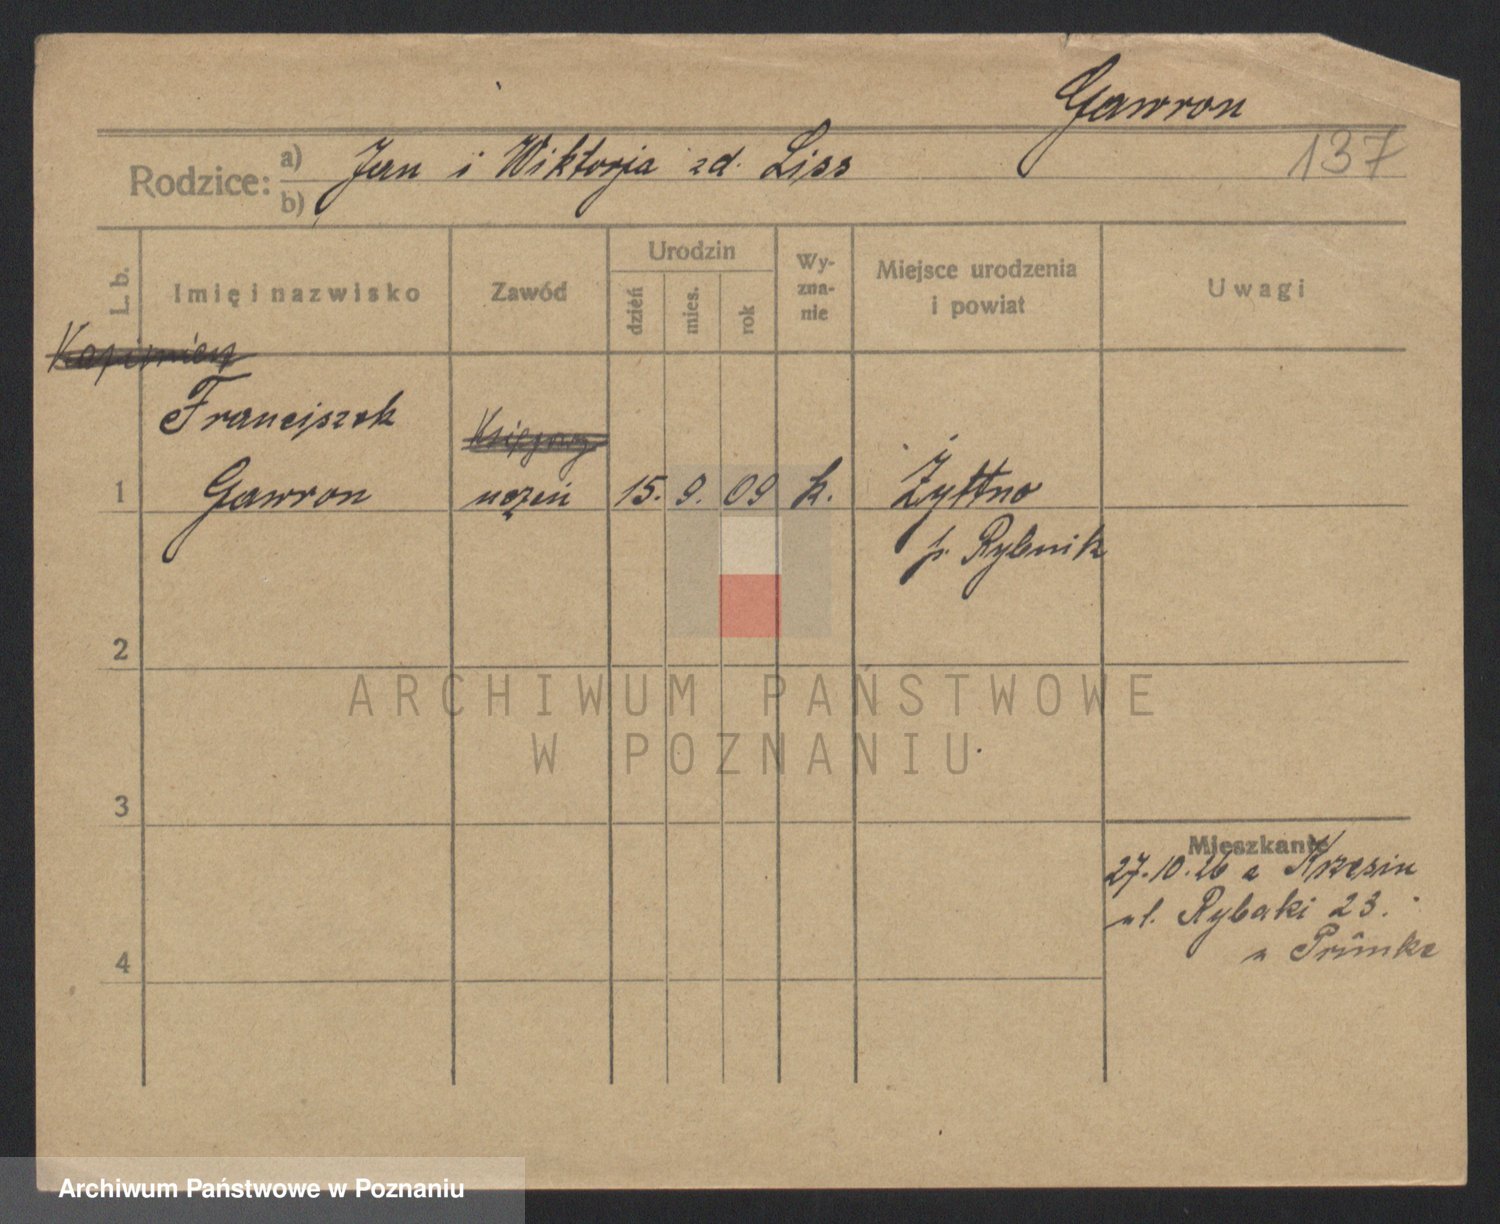 Gawron
137
Rodzice: a) Jan i Wiktorja zd. Liss
b)
L. b. Imię i nazwisko Zawód Urodzin dzień mies. rok Wyzna-nie Miejsce urodzenia i powiat Uwagi
Kazimierz
Franciszek
Księgowy
1 Gawron uczeń 15. 9. 09 k. Żyttno
p. Rybnik
2
ARCHIWUM PAŃSTWOWE
W POZNANIU
3
Mieszkanie
27.10.26 z Krzesin
ul. Rybaki 23.
u Prümke
4
Archiwum Państwowe w Poznaniu